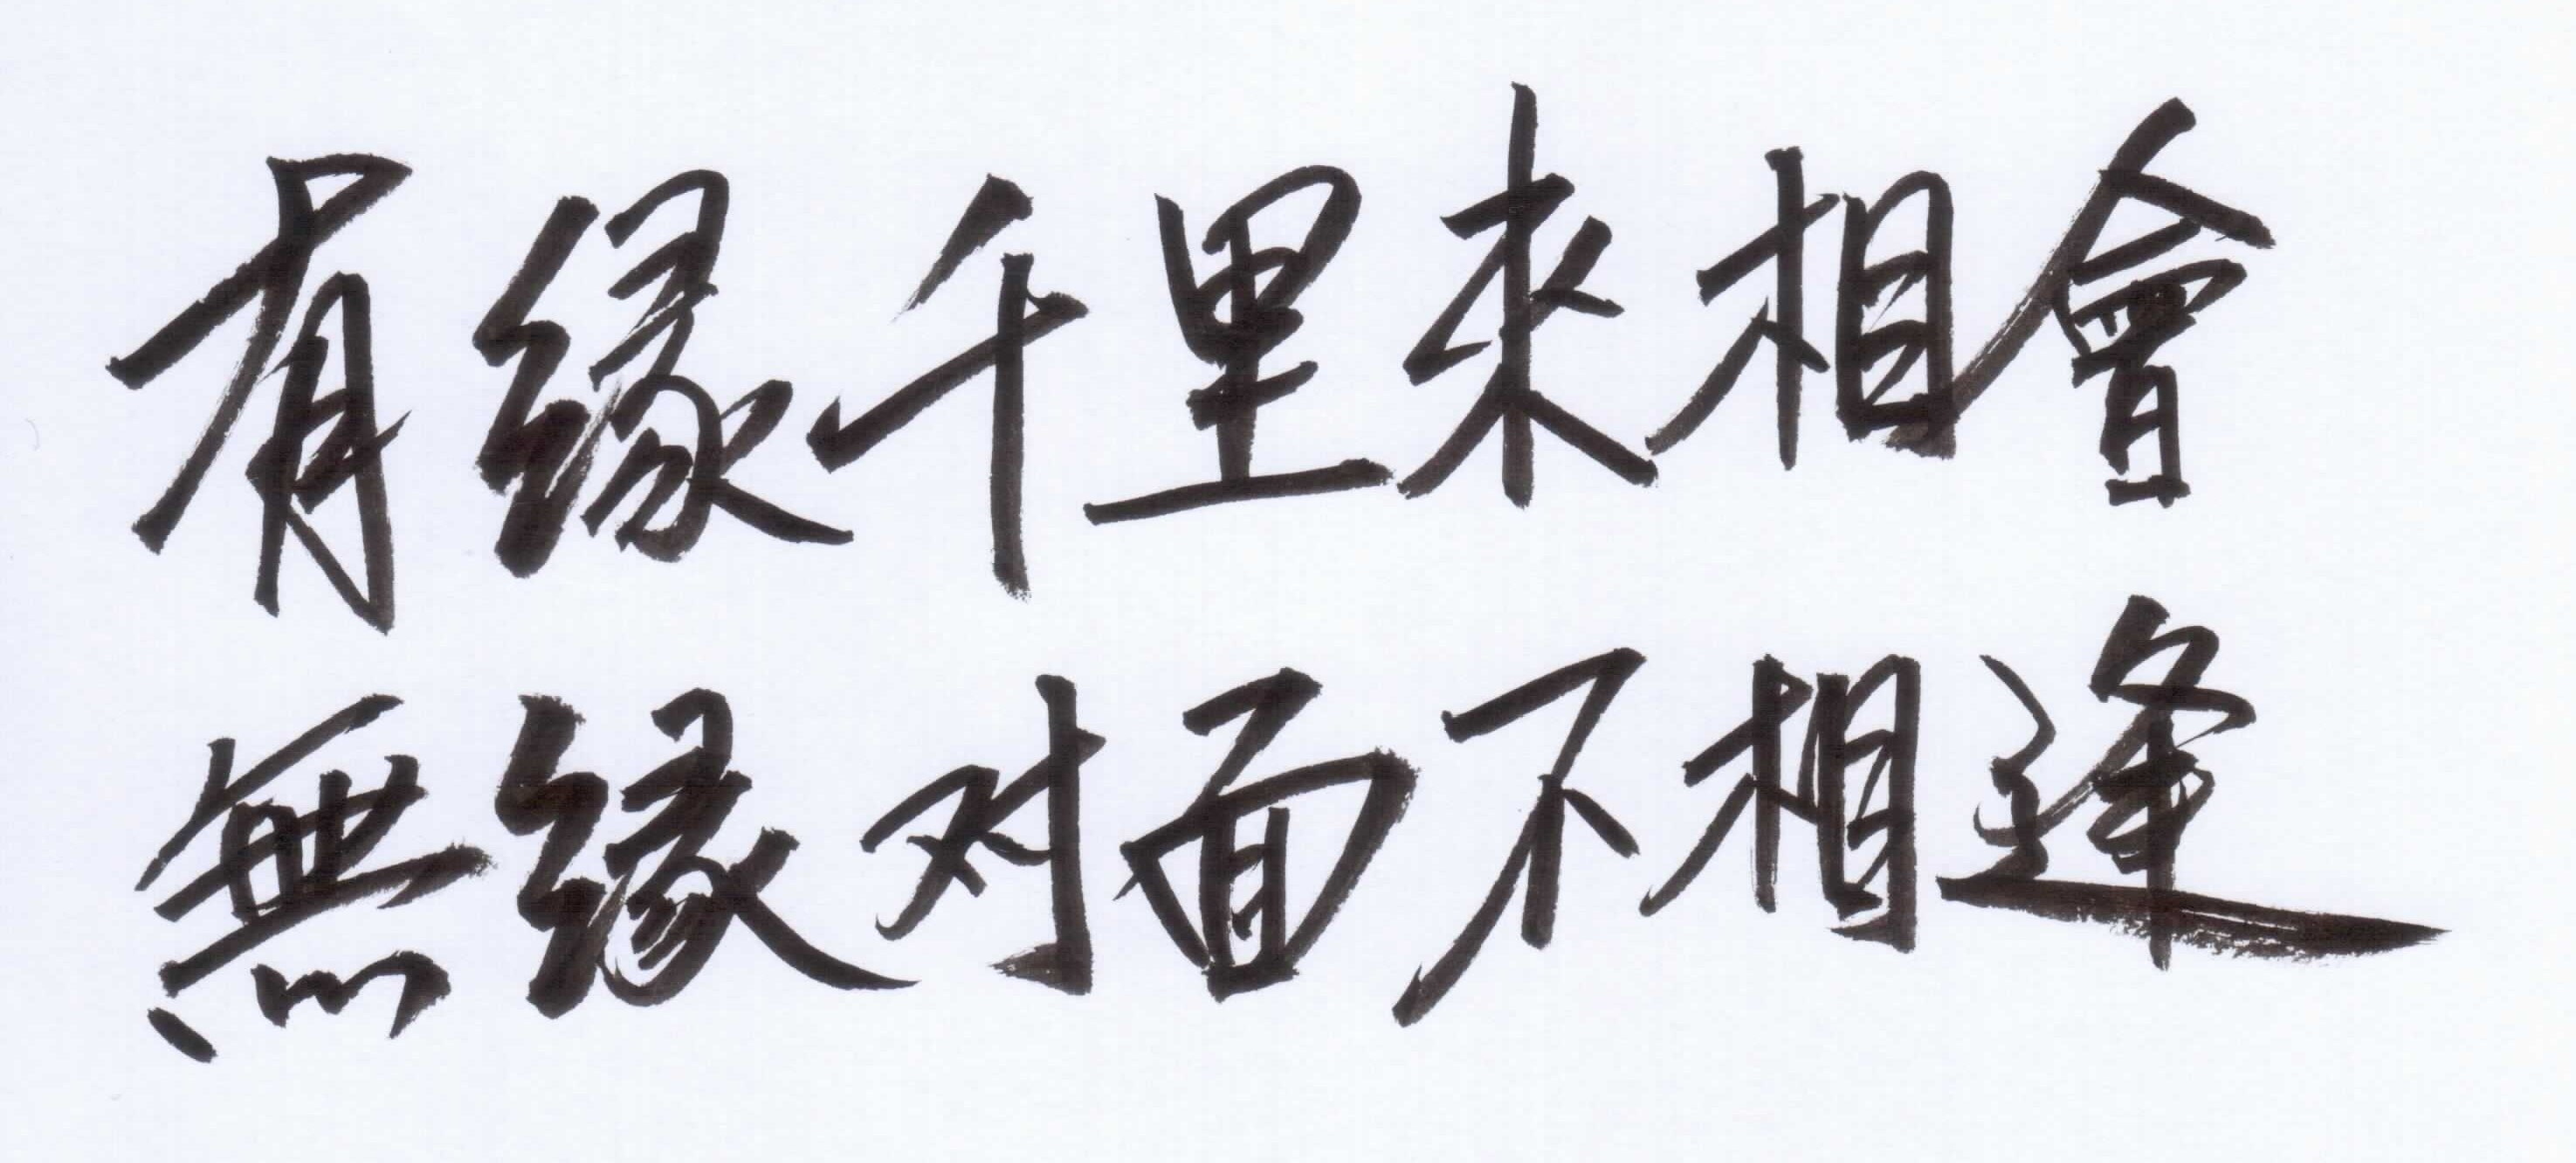 有缘千里來相會
無缘对面不相逢